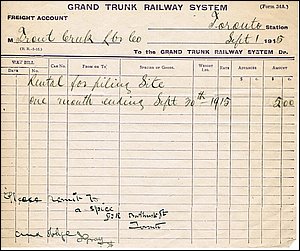 GRAND TRUNK RAILWAY SYSTEM
(Form 34A.)
FREIGHT ACCOUNT
Toronto Station
M Trout Creek Lbr Co
Sept 1 1915
To the GRAND TRUNK RAILWAY SYSTEM Dr.
WAY BILL
DATE No. CAR No. FROM OR TO SPECIES OF GOODS. WEIGHT Lbs. RATE ADVANCES AMOUNT
Rental for piling Site
one month ending Sept 30th 1915 5.00
Please remit to
a
Bathurst St
Toronto
and oblige